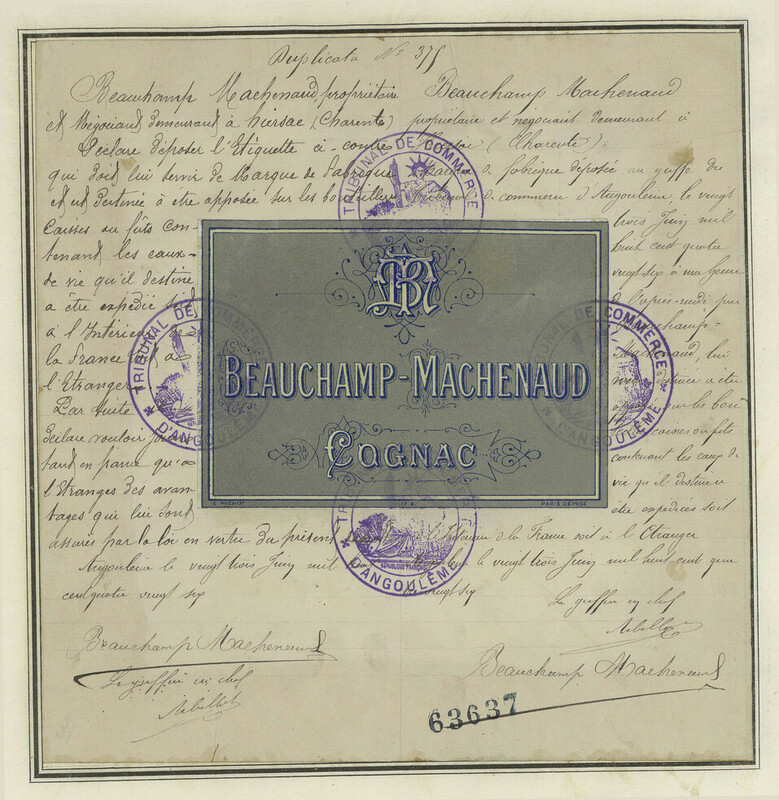 Duplicata N° 375
Beauchamp Machenaud, propriétaire
et Négociant demeurant à hiersac (Charente)
Déclare déposer l'Etiquette ci-contre
qui doit lui servir de Marque de fabrique
et est destinée à être apposée sur les bouteilles
Caisses ou fûts con-
tenant les eaux-
de vie qu'il destine
a être expédié soit
à l'Intérieur de
la France soit a
l'Etranger
Par suite
déclare vouloir
tant en france qu'a
l'Etranger des avan-
tages que lui sont
assurés par la loi en vertu du présent
Angoulême le vingt trois Juin mil
cent quatre vingt six
Beauchamp Machenaud
Le greffier en chef
Beauchamp Machenaud
propriétaire et négociant demeurant à
(Charente)
de fabrique déposée au greffe du
de commerce d'Angoulême, le vingt
trois Juin mil
huit cent quatre
vingt six à une heure
de l'après-midi par
Beauchamp-
Machenaud, lui
destinée a être
sur les bou
caisses ou fûts
contenant les eaux de
vie qu'il destine
être expédiées soit
l'Intérieur de la France soit à l'Etranger
le vingt trois Juin mil huit cent qua
vingt six
Le greffier en chef
Beauchamp Machenaud
63637
TRIBUNAL DE COMMERCE
BM
BEAUCHAMP-MACHENAUD
COGNAC
PARIS DÉPOSÉ
TRIBUNAL DE COMMERCE
D'ANGOULÊME
TRIBUNAL DE COMMERCE
D'ANGOULÊME
TRIBUNAL
RÉPUBLIQUE FRANÇAISE
D'ANGOULÊME